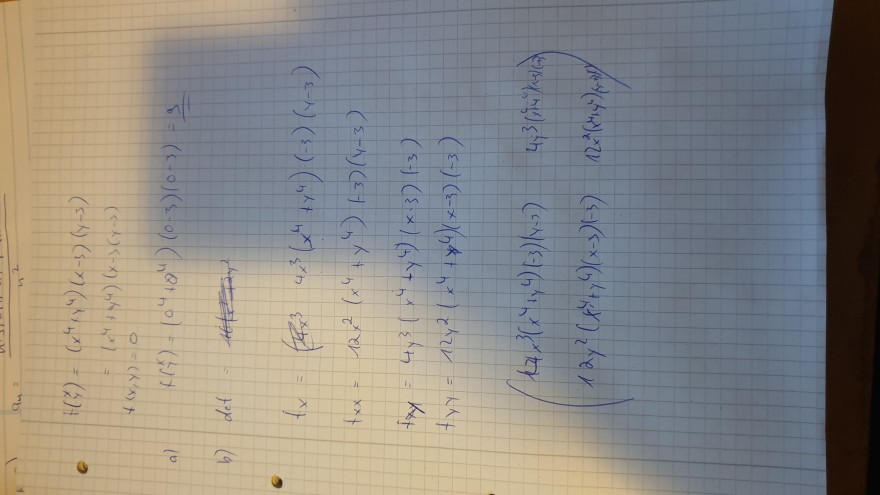 an =
n²
f(x y) = (x⁴+y⁴)(x-3)(y-3)
= (x⁴+y⁴)(x-3)(y-3)
f(x,y) = 0
a) f(x y) = (0⁴+0⁴)(0-3)(0-3) = 9
b) det
fx = 4x³ (x⁴+y⁴)(-3)(y-3)
fxx = 12x² (x⁴+y⁴)(-3)(y-3)
fxy = 4y³ (x⁴+y⁴)(x-3)(-3)
fyy = 12y² (x⁴+y⁴)(x-3)(-3)
4x³(x⁴+y⁴)(-3)(y-3) 4y³(x⁴+y⁴)(x-3)(-3)
12y²(x⁴+y⁴)(x-3)(-3) 12x²(x⁴+y⁴)